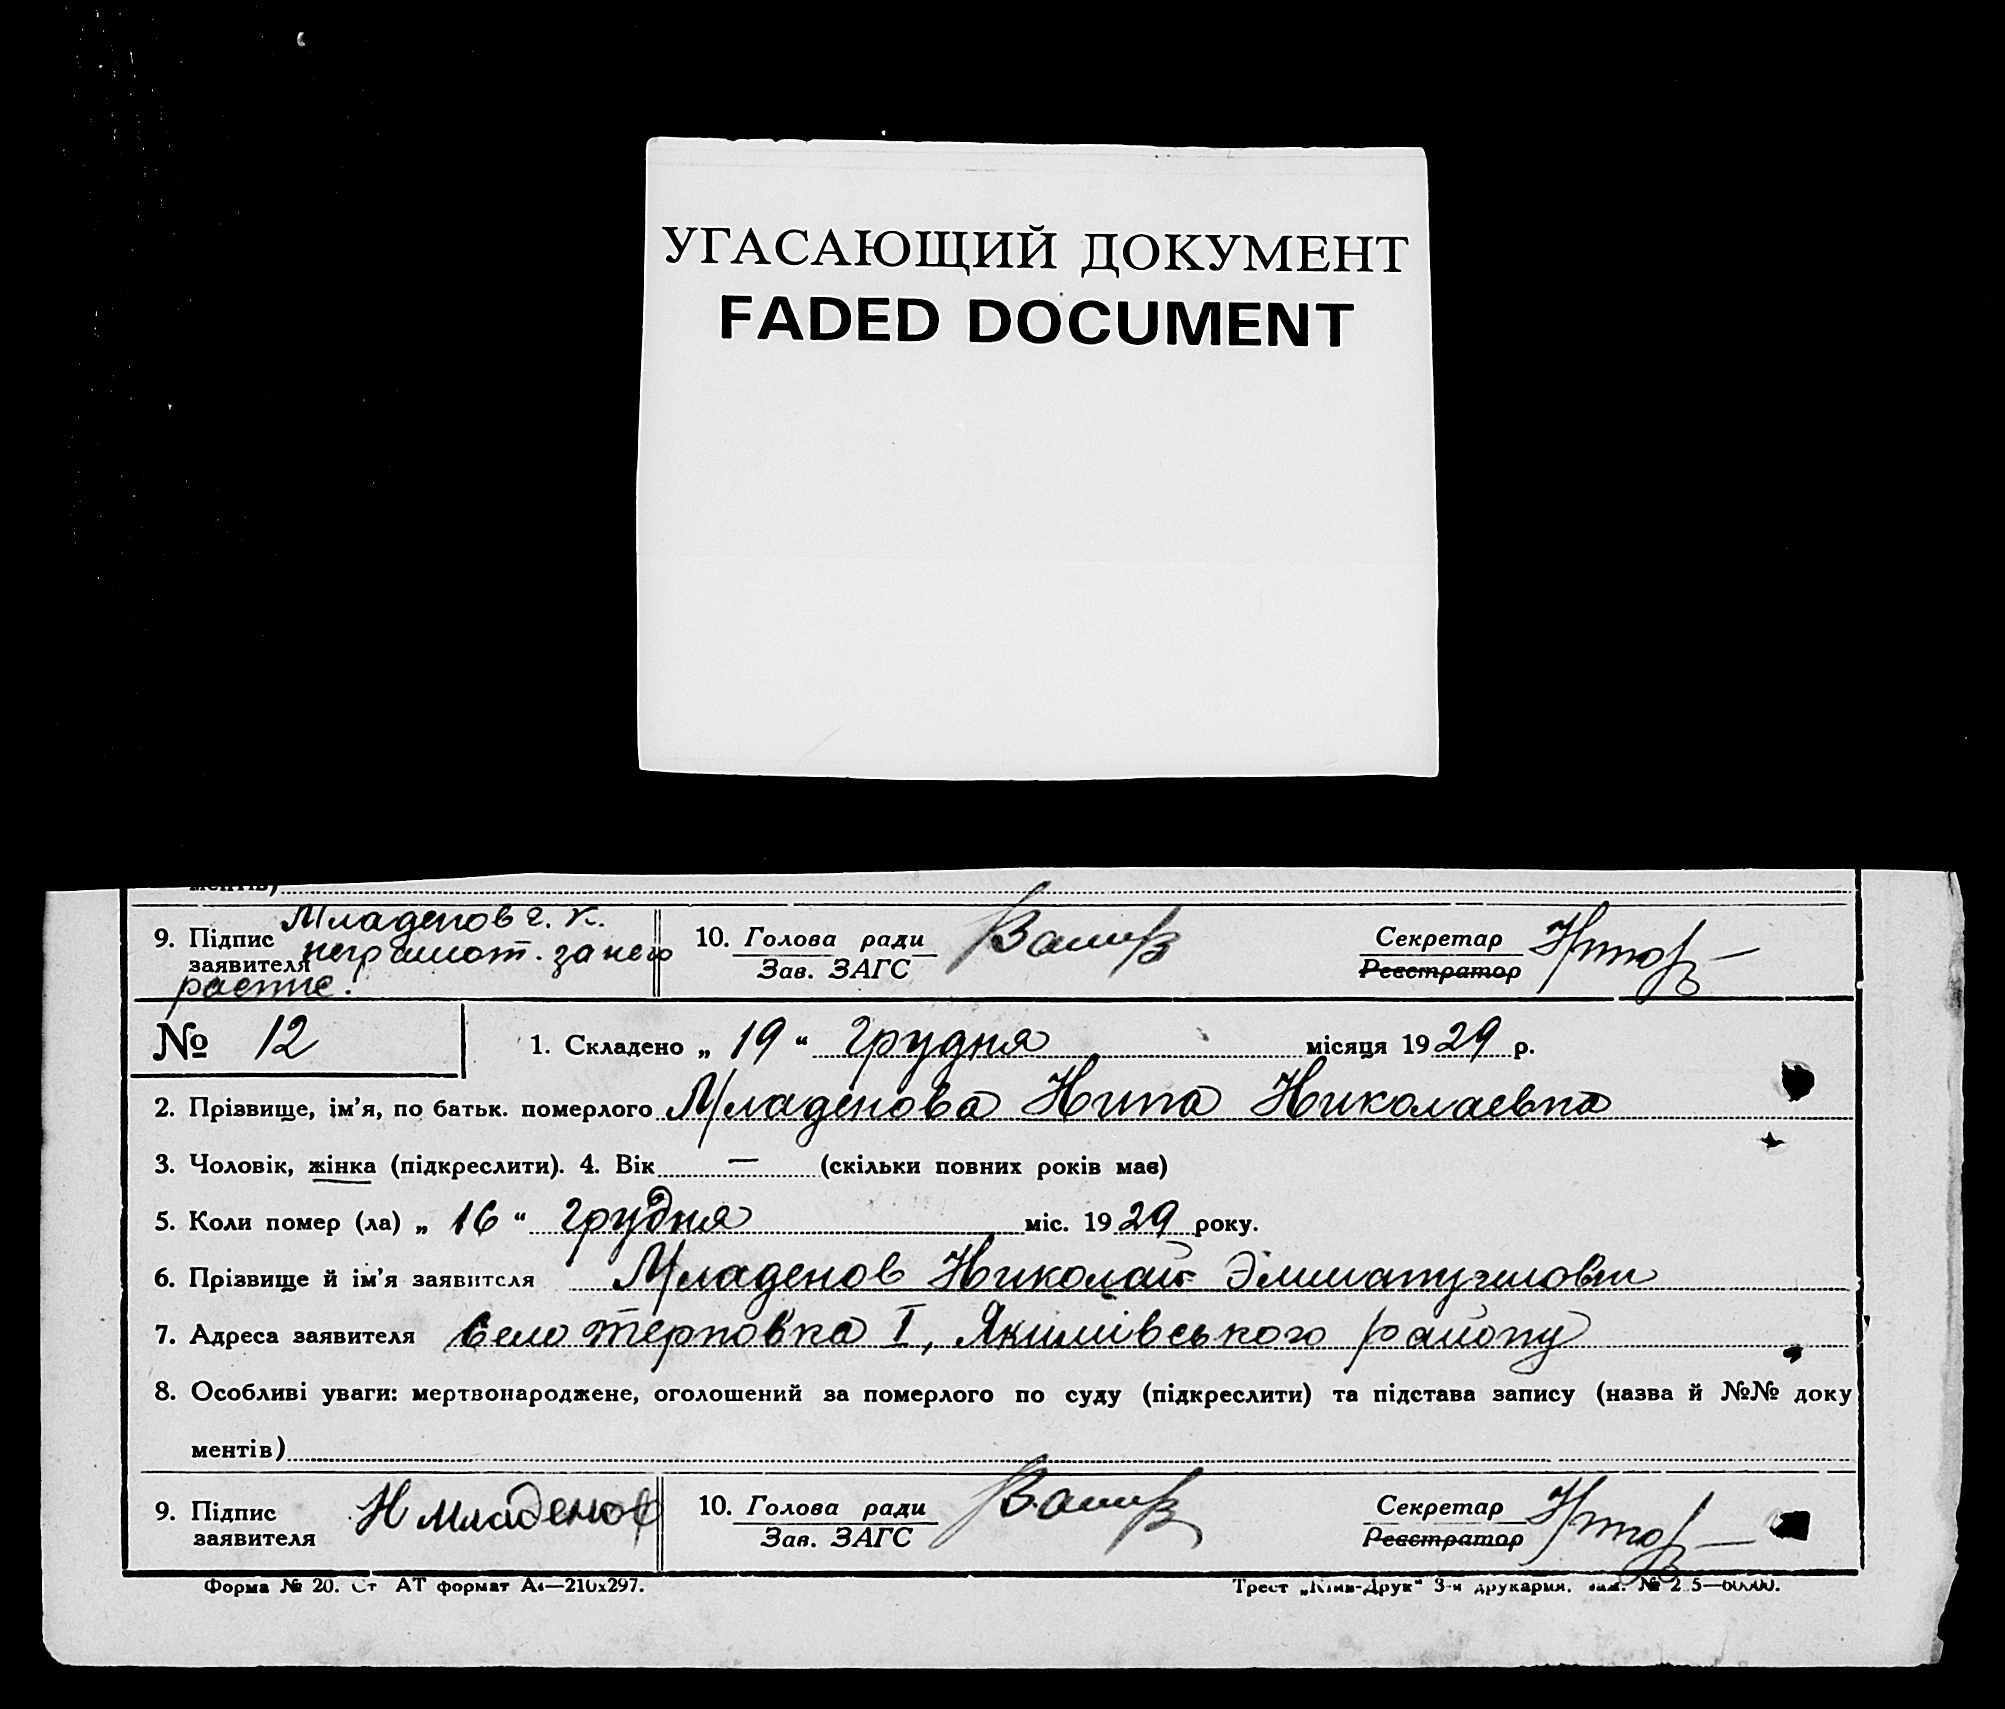 УГАСАЮЩИЙ ДОКУМЕНТ
FADED DOCUMENT
ментів)
9. Підпис заявителя Младенов г. к.
неграмот. за него
распис.
10. Голова ради
Зав. ЗАГС
Секретар
Реєстратор
№ 12
1. Складено „ 19 “ грудня місяця 1929 р.
2. Прізвище, ім’я, по батьк. померлого Младенова Нина Николаевна
3. Чоловік, жінка (підкреслити). 4. Вік — (скільки повних років має)
5. Коли помер (ла) „ 16 “ грудня міс. 1929 року.
6. Прізвище й ім’я заявителя Младенов Николай
7. Адреса заявителя село Терновка I, Якимівського району
8. Особливі уваги: мертвонароджене, оголошений за померлого по суду (підкреслити) та підстава запису (назва й №№ доку
ментів)
9. Підпис заявителя Н Младенов
10. Голова ради
Зав. ЗАГС
Секретар
Реєстратор
Форма № 20. Ст АТ формат А4—210x297.
Трест „Київ-Друк“ 3-я друкарня. зам. №